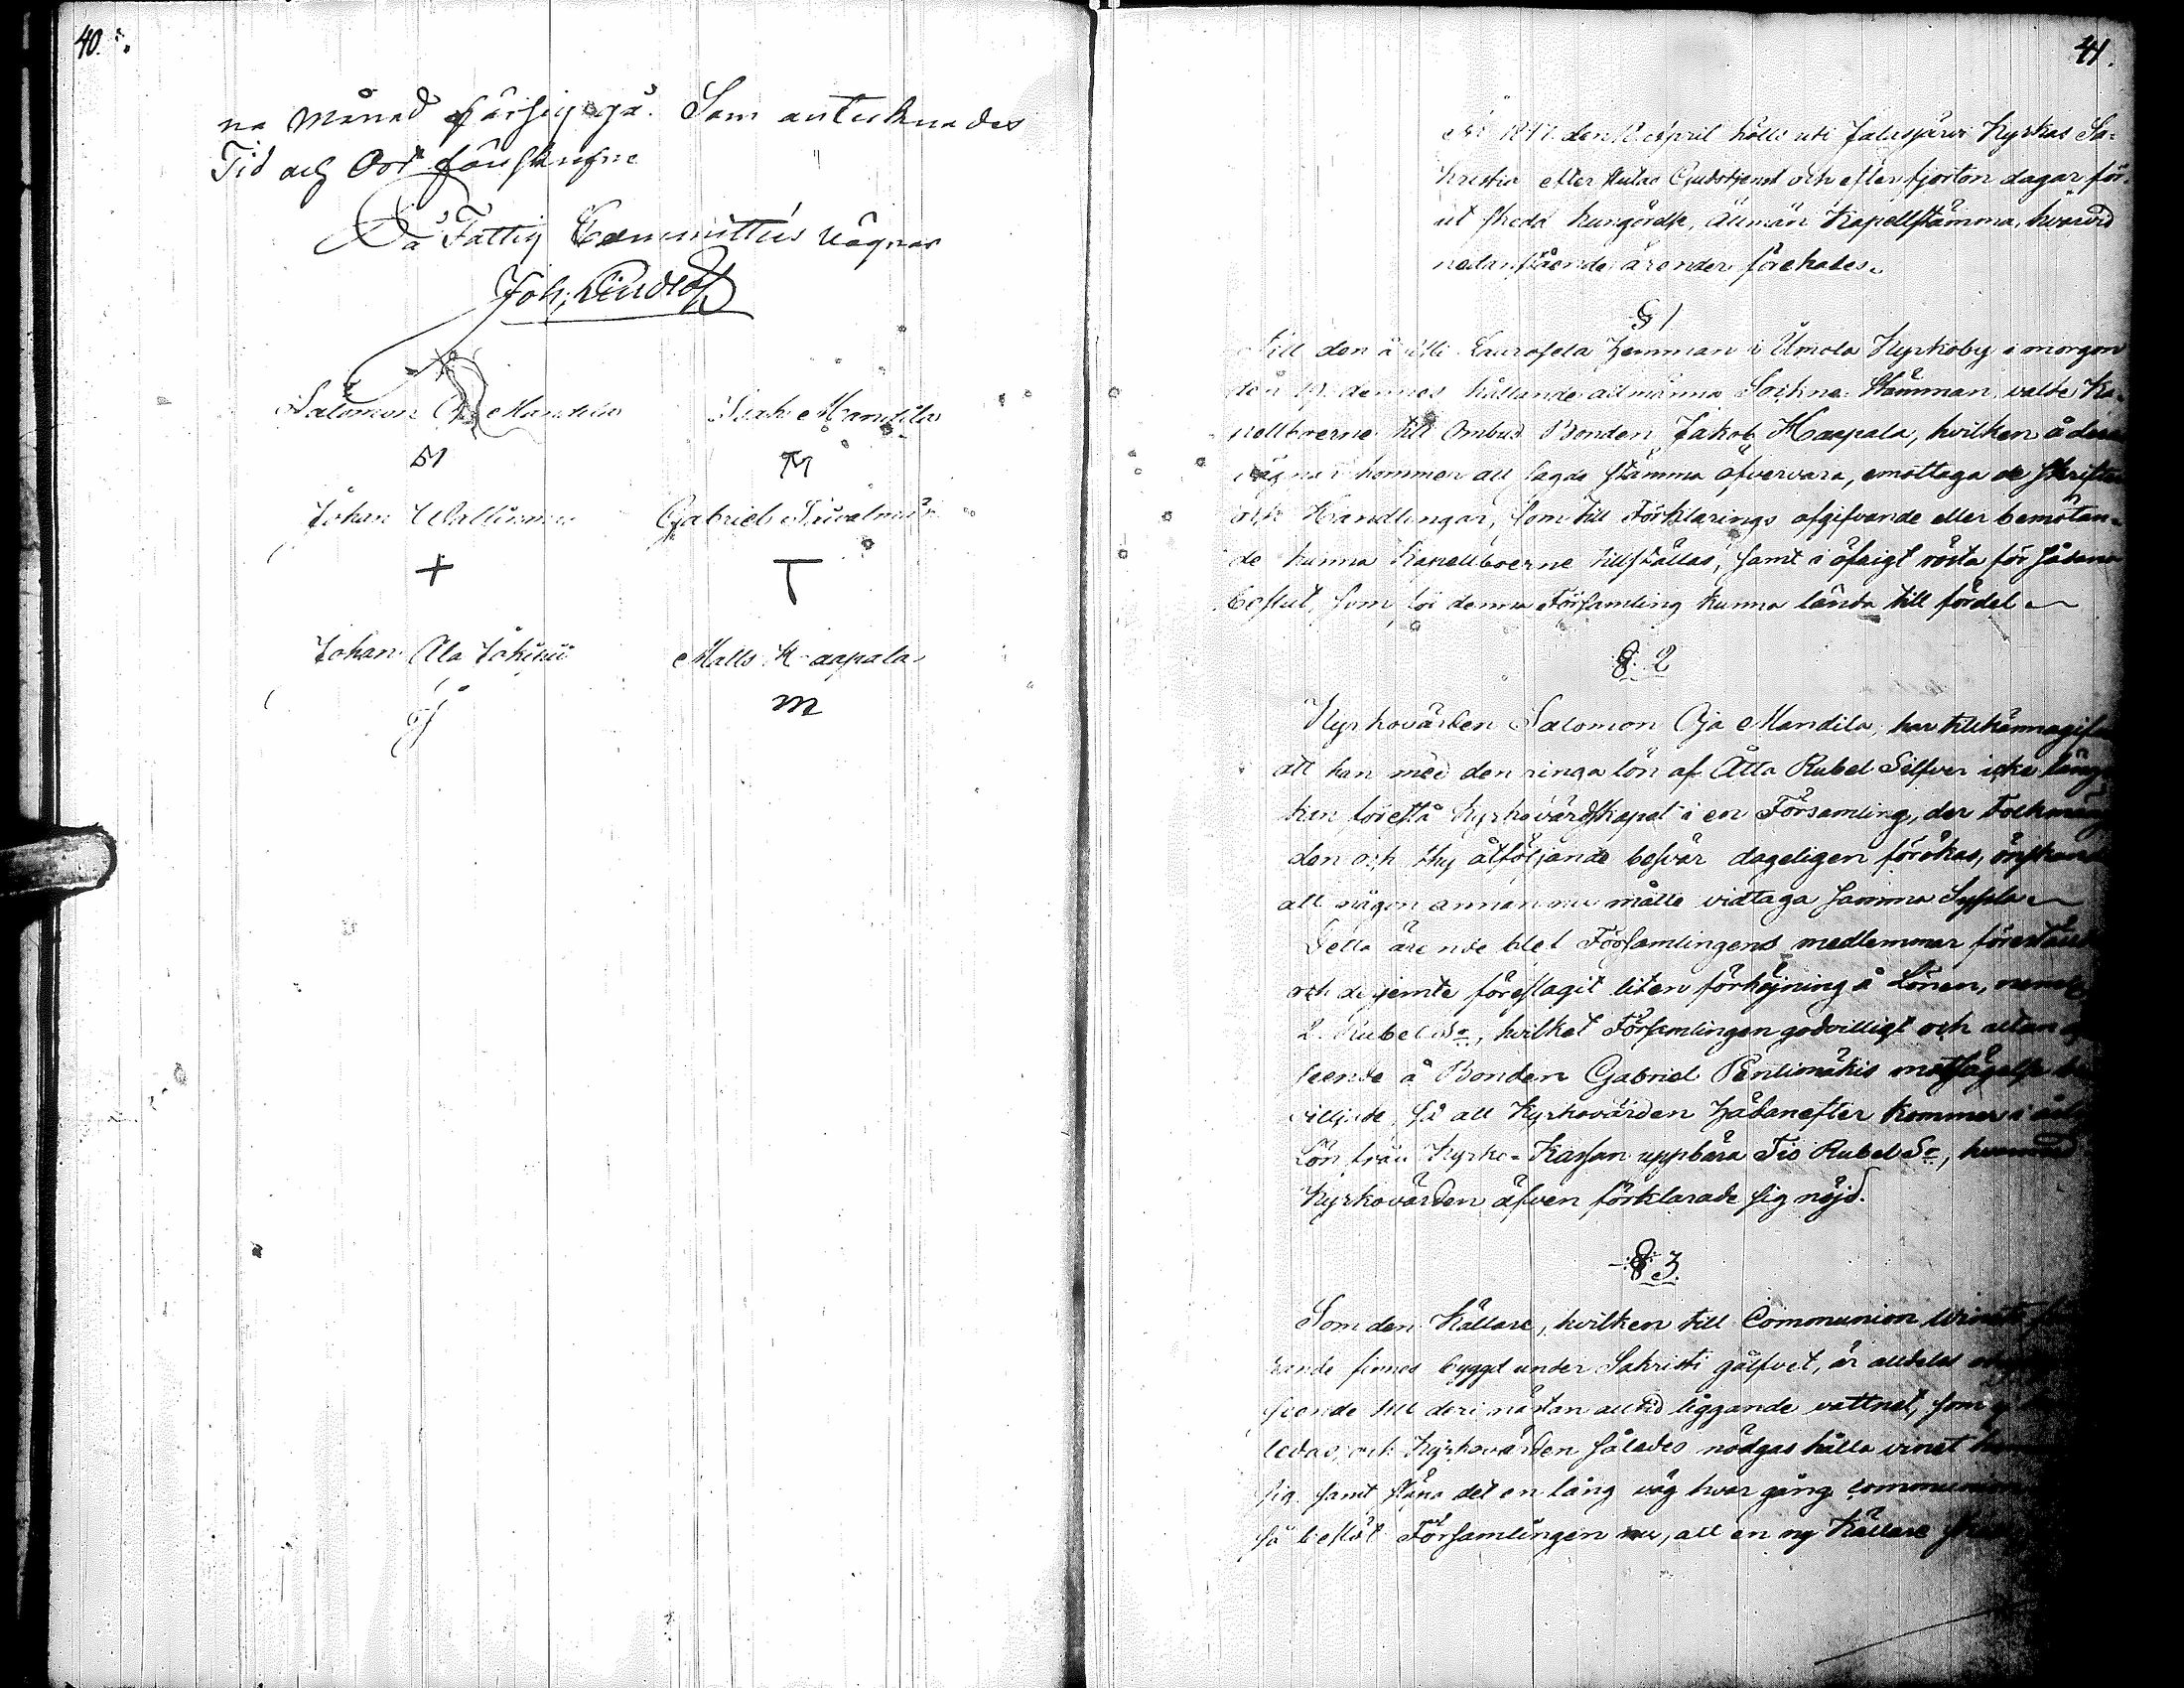 40.
na månad försiggå. Som antecknades
Tid och Ort förskrifne
På Fattig Committeens vägnar
Joh. Lindlöf
Salomon Oja Mandila
Isak Mandila
M
Johan Wallinmä
Gabriel
+
T
Johan Ala Jåkikü
Matts Kaapala
J
m
41.
År 1847 den 11 April hölls uti Jalasjärvi Kyrkas Sa-
kristia efter slutad Gudstjenst och efter fjorton dagar för-
ut skedd kungörelse, Allmän Kapellstämma, hvarvid
nedanstående ärender förehades.
§ 1
Till den å Hemman i Ilmola Kyrkoby i morgon
den 12 dennes hållande allmänna Sockne Stämman, valde Ka-
pellboerne till Ombud Bonden Jakob Haapala, hvilken å deras
vägnar kommer att sagda stämma öfvervara, emottaga de skrifter
och Handlingar, som till Förklarings afgifvande eller bemötan-
de kunna Kapellboerne tillställas, samt i öfrigt rösta för sådana
beslut, som för denna Församling kunna lända till fördel.
§ 2
Kyrkovärden Salomon Oja Mandila, har tillkännagif
att han med den ringa lön af Åtta Rubel Silfver icke läng
kan förestå Kyrkovärdskapet i en Församling, der Folkmäng
den och thy åtföljande besvär dageligen förökas, önskand
att någon annan nu måtte vidtaga samma Syssla
Detta ärende blef Församlingens medlemmar förestäld
och dejemte föreslagit liten förhöjning å Lönen, neml.
2 Rubel Sr, hvilket Församlingen godvilligt och utan af
seende å Bonden Gabriel Pentimäkis motsägelse be
villjade, så att Kyrkovärden hädanefter kommer i års
Lön från Kyrko-Kassan uppbära Tio Rubel Sr, hvarmed
Kyrkovärden äfven förklarade sig nöjd.
§ 3.
Som den Källare, hvilken till Communion Vinets
rande finnes byggd under Sakristi gålfvet, är alldeles
seende till deri nästan alltid liggande vattnet, som ej
ledas, och Kyrkovärden således nödgas hålla vinet
sig samt föra det en lång väg hvar gång communion
så beslöt Församlingen nu, att en ny Källare